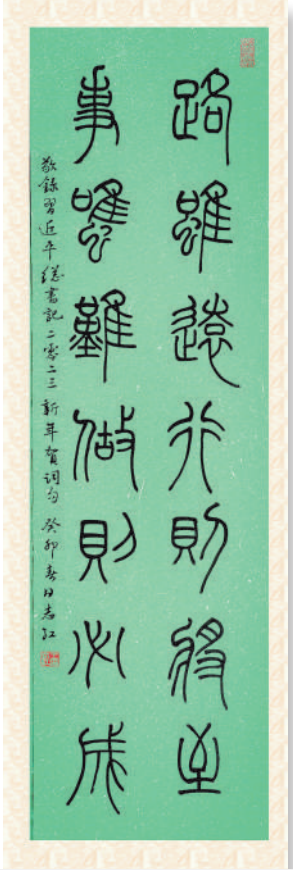 路雖遠行則將至
事雖難做則必成
敬錄習近平總書記二零二三新年賀詞句 癸卯春日志红